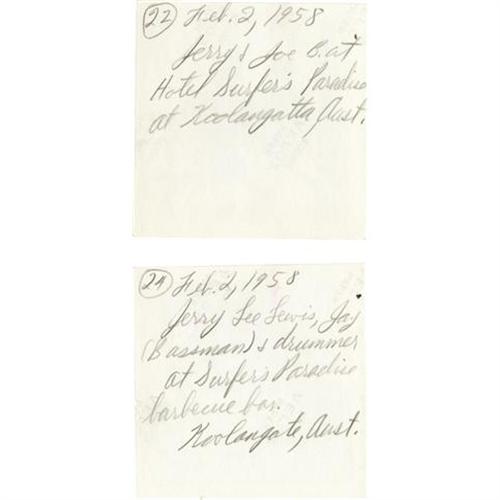 22 Feb. 2, 1958
Jerry & Joe B. at
Hotel Surfer's Paradise
at Koolangatta, Aust.
24 Feb. 2, 1958
Jerry Lee Lewis, Jay
(Bassman) & drummer
at Surfer's Paradise
barbecue bar.
Koolangate, Aust.